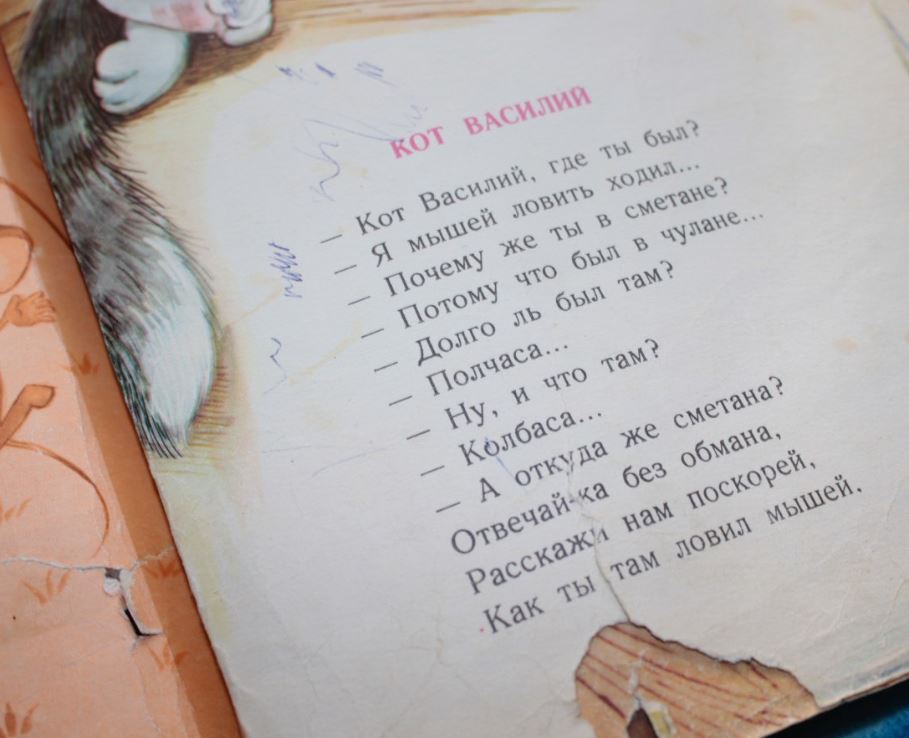 КОТ ВАСИЛИЙ
— Кот Василий, где ты был?
— Я мышей ловить ходил...
— Почему же ты в сметане?
— Потому что был в чулане...
— Долго ль был там?
— Полчаса...
— Ну, и что там?
— Колбаса...
— А откуда же сметана?
Отвечай-ка без обмана,
Расскажи нам поскорей,
Как ты там ловил мышей.